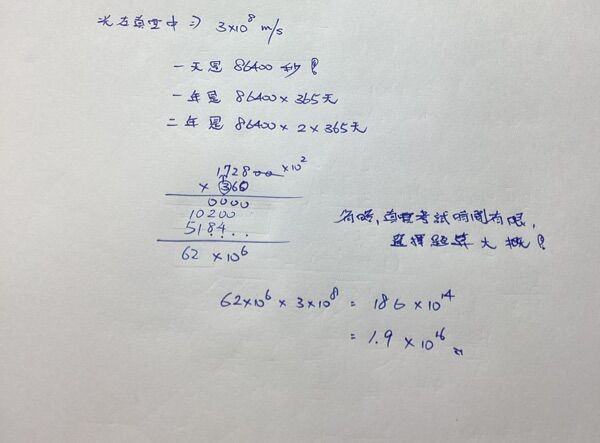 光在真空中 => 3×10⁸ m/s
一天是 86400 秒!
一年是 86400 × 365天
二年是 86400 × 2 × 365天
172800 ×10²
× 360
0000
10200
5184..
62 ×10⁶
有時,真實考試時間有限,
選擇題算大概!
62×10⁶ × 3×10⁸ = 186 × 10¹⁴
= 1.9 × 10¹⁶